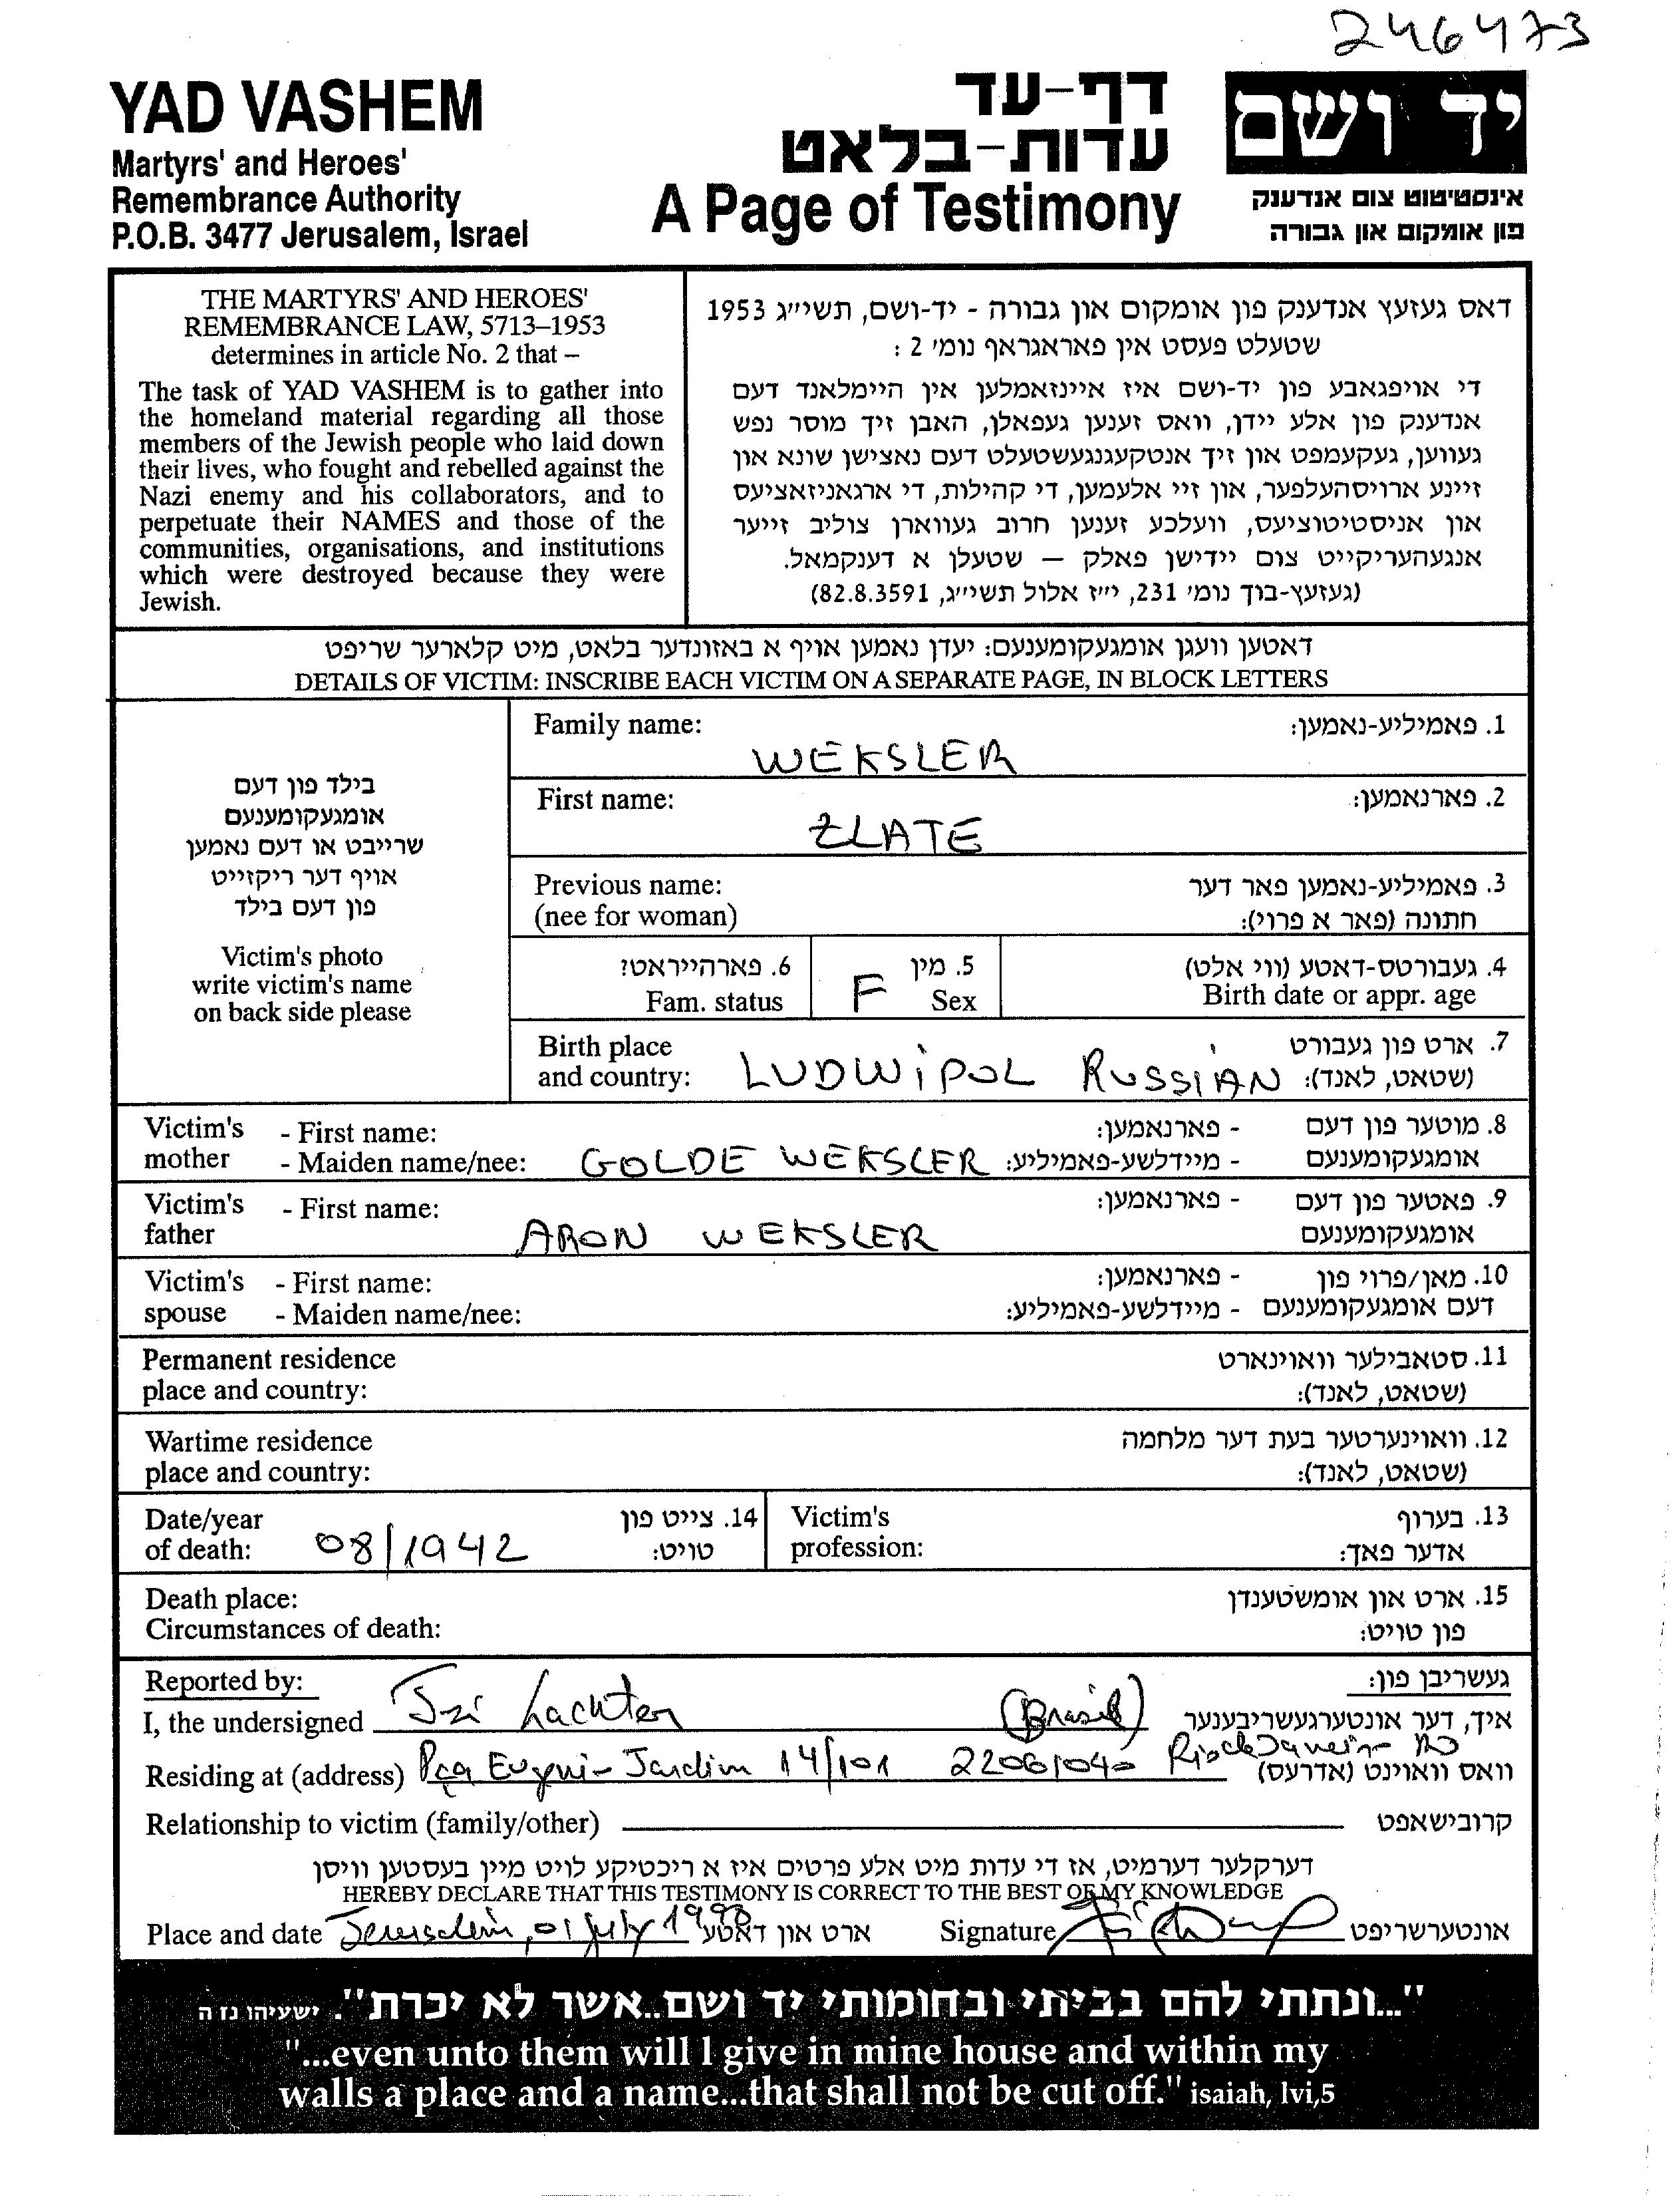 246473
YAD VASHEM
Martyrs' and Heroes'
Remembrance Authority
P.O.B. 3477 Jerusalem, Israel
דף-עד
עדות-בלאט
A Page of Testimony
יד ושם
אינסטיטוט צום אנדענק
פון אומקום און גבורה
THE MARTYRS' AND HEROES'
REMEMBRANCE LAW, 5713–1953
determines in article No. 2 that –
The task of YAD VASHEM is to gather into
the homeland material regarding all those
members of the Jewish people who laid down
their lives, who fought and rebelled against the
Nazi enemy and his collaborators, and to
perpetuate their NAMES and those of the
communities, organisations, and institutions
which were destroyed because they were
Jewish.
דאס געזעץ אנדענק פון אומקום און גבורה - יד-ושם, תשי״ג 1953
שטעלט פעסט אין פאראגראף נומ׳ 2 :
די אויפגאבע פון יד-ושם איז איינזאמלען אין היימלאנד דעם
אנדענק פון אלע יידן, וואס זענען געפאלן, האבן זיך מוסר נפש
געווען, געקעמפט און זיך אנטקעגנגעשטעלט דעם נאצישן שונא און
זיינע ארויסהעלפער, און זיי אלעמען, די קהילות, די ארגאניזאציעס
און אניסטיטוציעס, וועלכע זענען חרוב געווארן צוליב זייער
אנגעהעריקייט צום יידישן פאלק — שטעלן א דענקמאל.
(געזעץ-בוך נומ׳ 231, י״ז אלול תשי״ג, 82.8.3591)
דאטען וועגן אומגעקומענעם: יעדן נאמען אויף א באזונדער בלאט, מיט קלארער שריפט
DETAILS OF VICTIM: INSCRIBE EACH VICTIM ON A SEPARATE PAGE, IN BLOCK LETTERS
בילד פון דעם
אומגעקומענעם
שרייבט או דעם נאמען
אויף דער ריקזייט
פון דעם בילד
Victim's photo
write victim's name
on back side please
Family name: WEKSLER 1. פאמיליע-נאמען:
First name: ZLATE 2. פארנאמען:
Previous name: 3. פאמיליע-נאמען פאר דער
(nee for woman) חתונה (פאר א פרוי):
6. פארהייראט? 5. מין 4. געבורטס-דאטע (ווי אלט)
Fam. status F Sex Birth date or appr. age
Birth place 7. ארט פון געבורט
and country: LUDWIPOL RUSSIAN (שטאט, לאנד):
Victim's - First name: - פארנאמען: 8. מוטער פון דעם
mother - Maiden name/nee: GOLDE WEKSLER - מיידלשע-פאמיליע: אומגעקומענעם
Victim's - First name: - פארנאמען: 9. פאטער פון דעם
father ARON WEKSLER אומגעקומענעם
Victim's - First name: - פארנאמען: 10. מאן/פרוי פון
spouse - Maiden name/nee: - מיידלשע-פאמיליע: דעם אומגעקומענעם
Permanent residence 11. סטאבילער וווינארט
place and country: (שטאט, לאנד):
Wartime residence 12. וואוינערטער בעת דער מלחמה
place and country: (שטאט, לאנד):
Date/year 14. צייט פון Victim's 13. בערוף
of death: 08/1942 טויט: profession: אדער פאך:
Death place: 15. ארט און אומשטענדן
Circumstances of death: פון טויט:
Reported by: געשריבן פון:
I, the undersigned Izi Lachter (Brasil) איך, דער אונטערגעשריבענער
Residing at (address) Pça Eugenio Jardim 14/101 22061040 Rio de Janeiro וואס וואוינט (אדרעס)
Relationship to victim (family/other) קרובישאפט
דערקלער דערמיט, אז די עדות מיט אלע פרטים איז א ריכטיקע לויט מיין בעסטען וויסן
HEREBY DECLARE THAT THIS TESTIMONY IS CORRECT TO THE BEST OF MY KNOWLEDGE
Place and date Jerusalem, 01 July 1998 ארט און דאטע Signature אונטערשריפט
"...ונתתי להם בביתי ובחומותי יד ושם..אשר לא יכרת". ישעיהו נז ה
"...even unto them will I give in mine house and within my
walls a place and a name...that shall not be cut off." isaiah, lvi,5